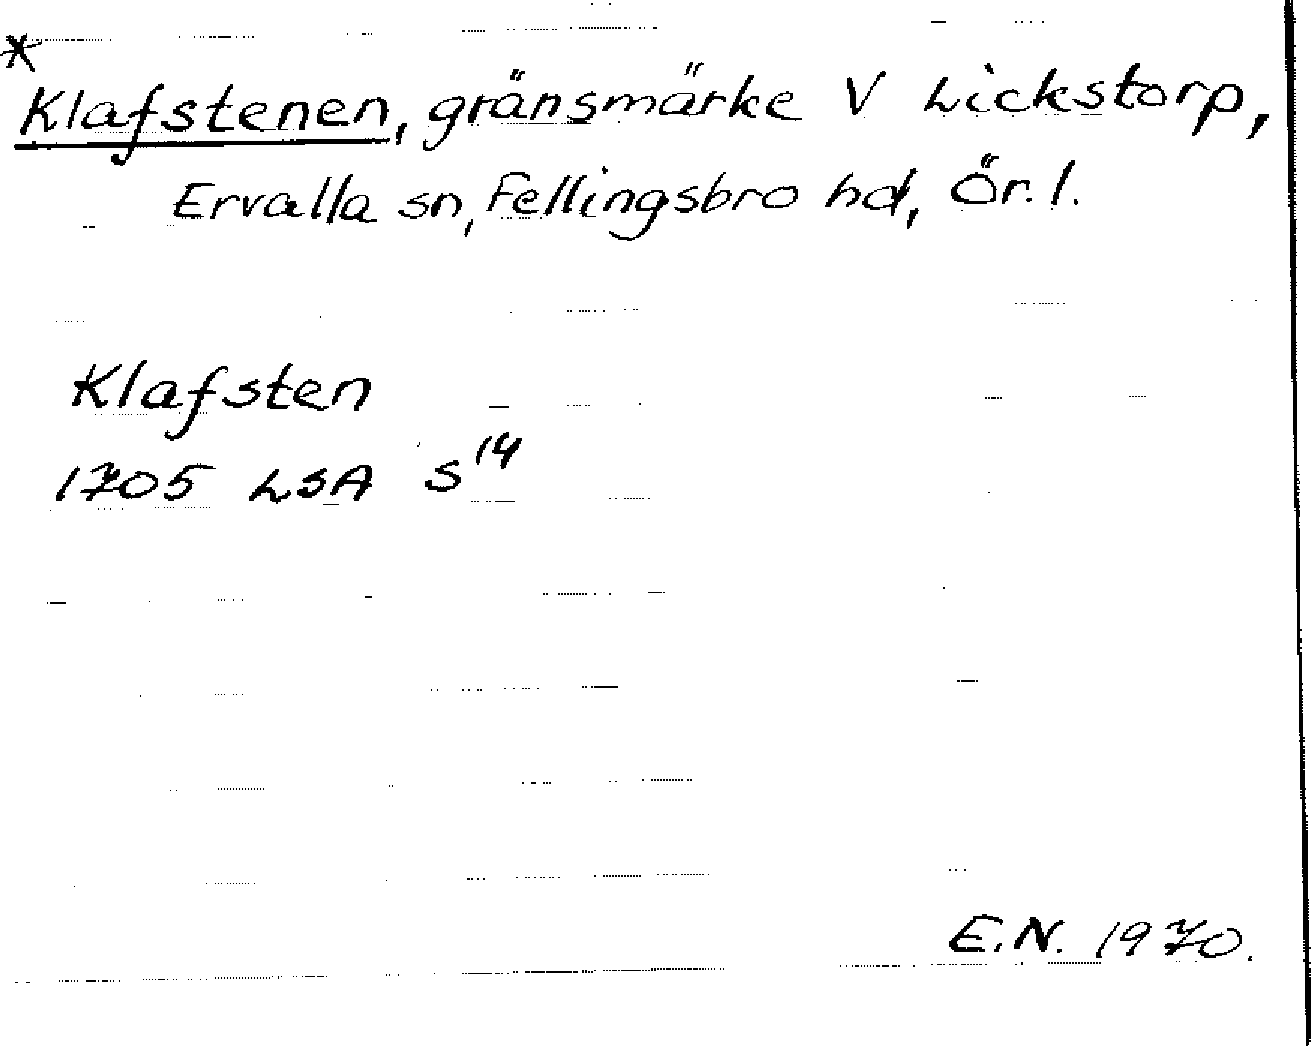 *
Klafstenen, gränsmärke V Lickstorp,
Ervalla sn, Fellingsbro hd, Ör. l.
Klafsten
1705 LSA S¹⁴
E.N. 1970.